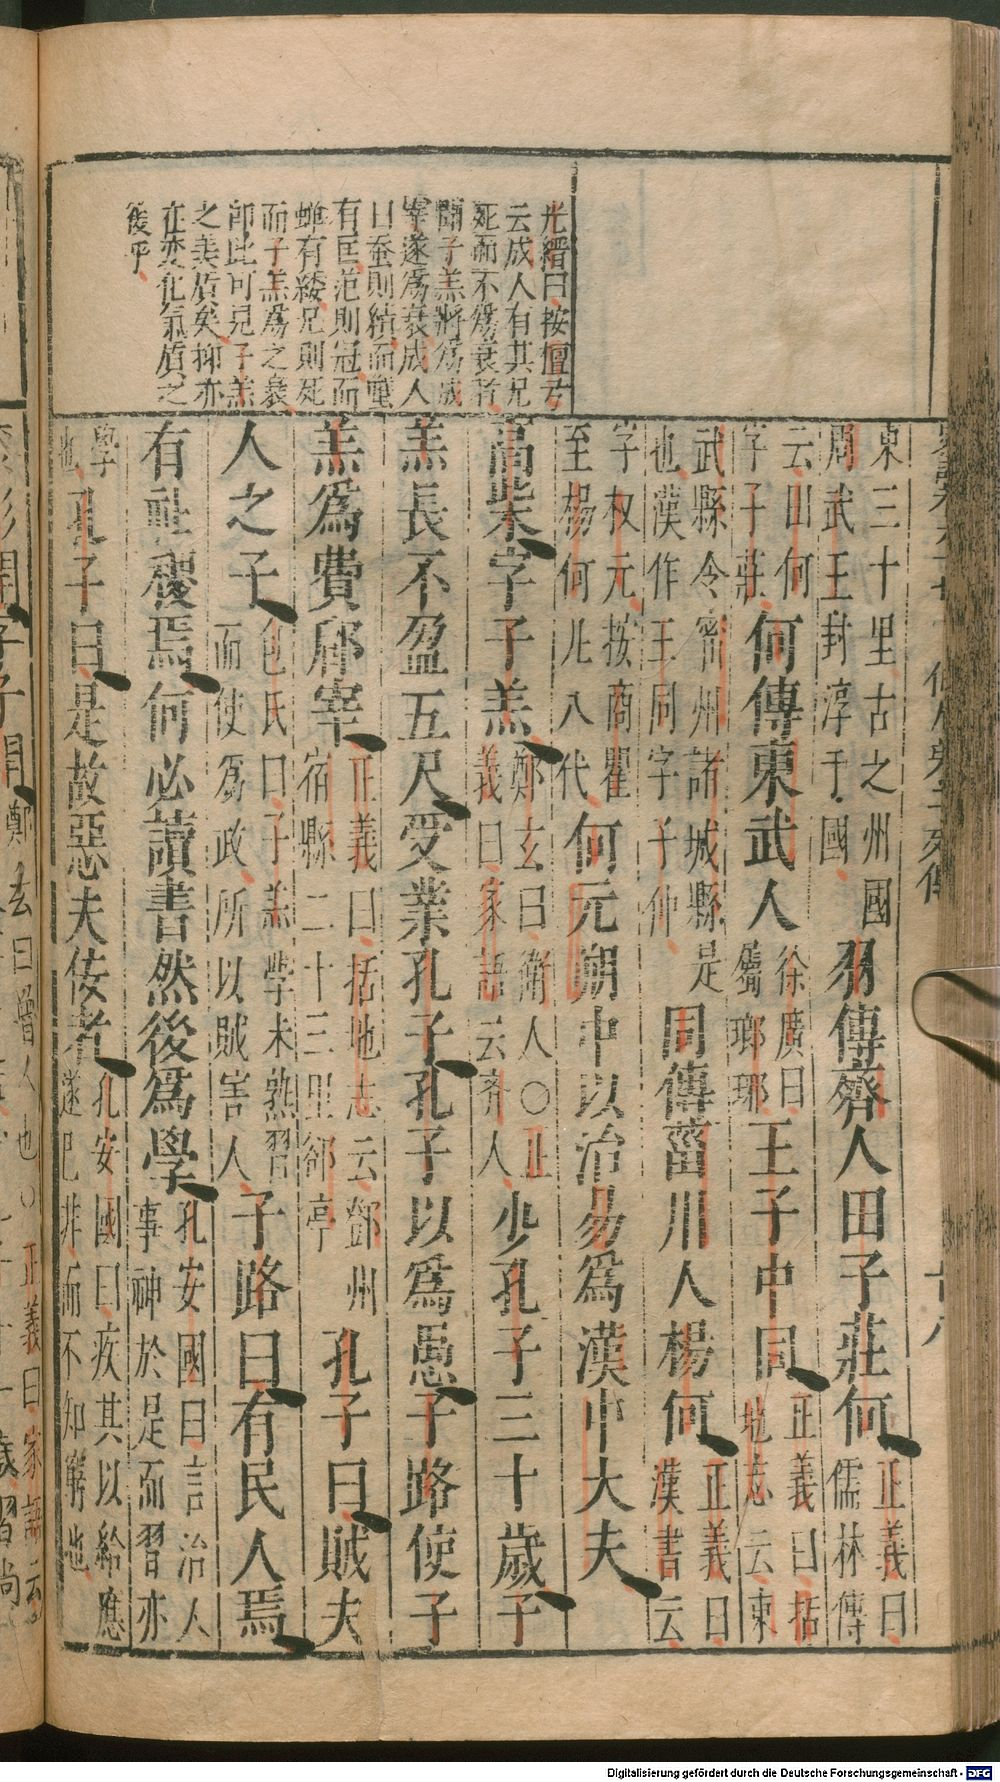 仲尼弟子列傳
十八
東三十里古之州國
周武王封淳于國
羽傳齊人田子莊何
正義曰
儒林傳
云田何
字子莊
何傳東武人
徐廣曰
屬瑯琊
王子中同
正義曰括
地志云東
武縣令密州諸城縣是
也漢作王同字子仲
同傳菑川人楊何
正義曰
漢書云
字权元按商瞿
至楊何凡八代
何元朔中以治易爲漢中大夫
高柴字子羔
鄭玄曰衛人○正
義曰家語云齊人
少孔子三十歲子
羔長不盈五尺受業孔子孔子以爲愚子路使子
羔爲費郈宰
正義曰括地志云鄆州
宿縣二十三里郈亭
孔子曰賊夫
人之子
包氏曰子羔學未熟習
而使爲政所以賊害人
子路曰有民人焉
有社稷焉何必讀書然後爲學
孔安國曰言治人
事神於是而習亦
學
也
孔子曰是故惡夫佞者
孔安國曰疾其以給應
遂已非而不知窮也
光縉曰按檀弓
云成人有其兄
死而不爲衰者
聞子羔將爲成
宰遂爲衰成人
曰蚕則績而蟹
有匡范則冠而
蟬有緌兄則死
而子羔爲之衰
即此可見子羔
之美質矣抑亦
在变化氣質之
後乎
開字子開
鄭玄曰魯人也○正義曰家語云
習尚
Digitalisierung gefördert durch die Deutsche Forschungsgemeinschaft - DFG